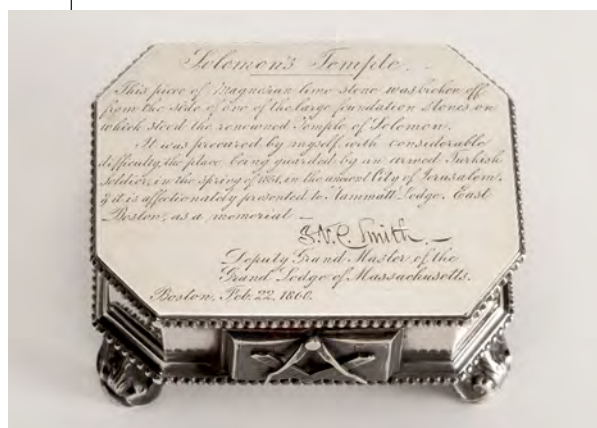 Solomon's Temple.
This piece of Magnesian lime stone was broken off
from the side of one of the large foundation stones on
which stood the renowned Temple of Solomon.
It was procured by myself, with considerable
difficulty, the place being guarded by an armed Turkish
soldier, in the spring of 1851, in the ancient City of Jerusalem,
& it is affectionately presented to Hammatt Lodge, East
Boston, as a memorial —
J.V.C. Smith. —
Deputy Grand Master of the
Grand Lodge of Massachusetts.
Boston, Feb. 22, 1860.